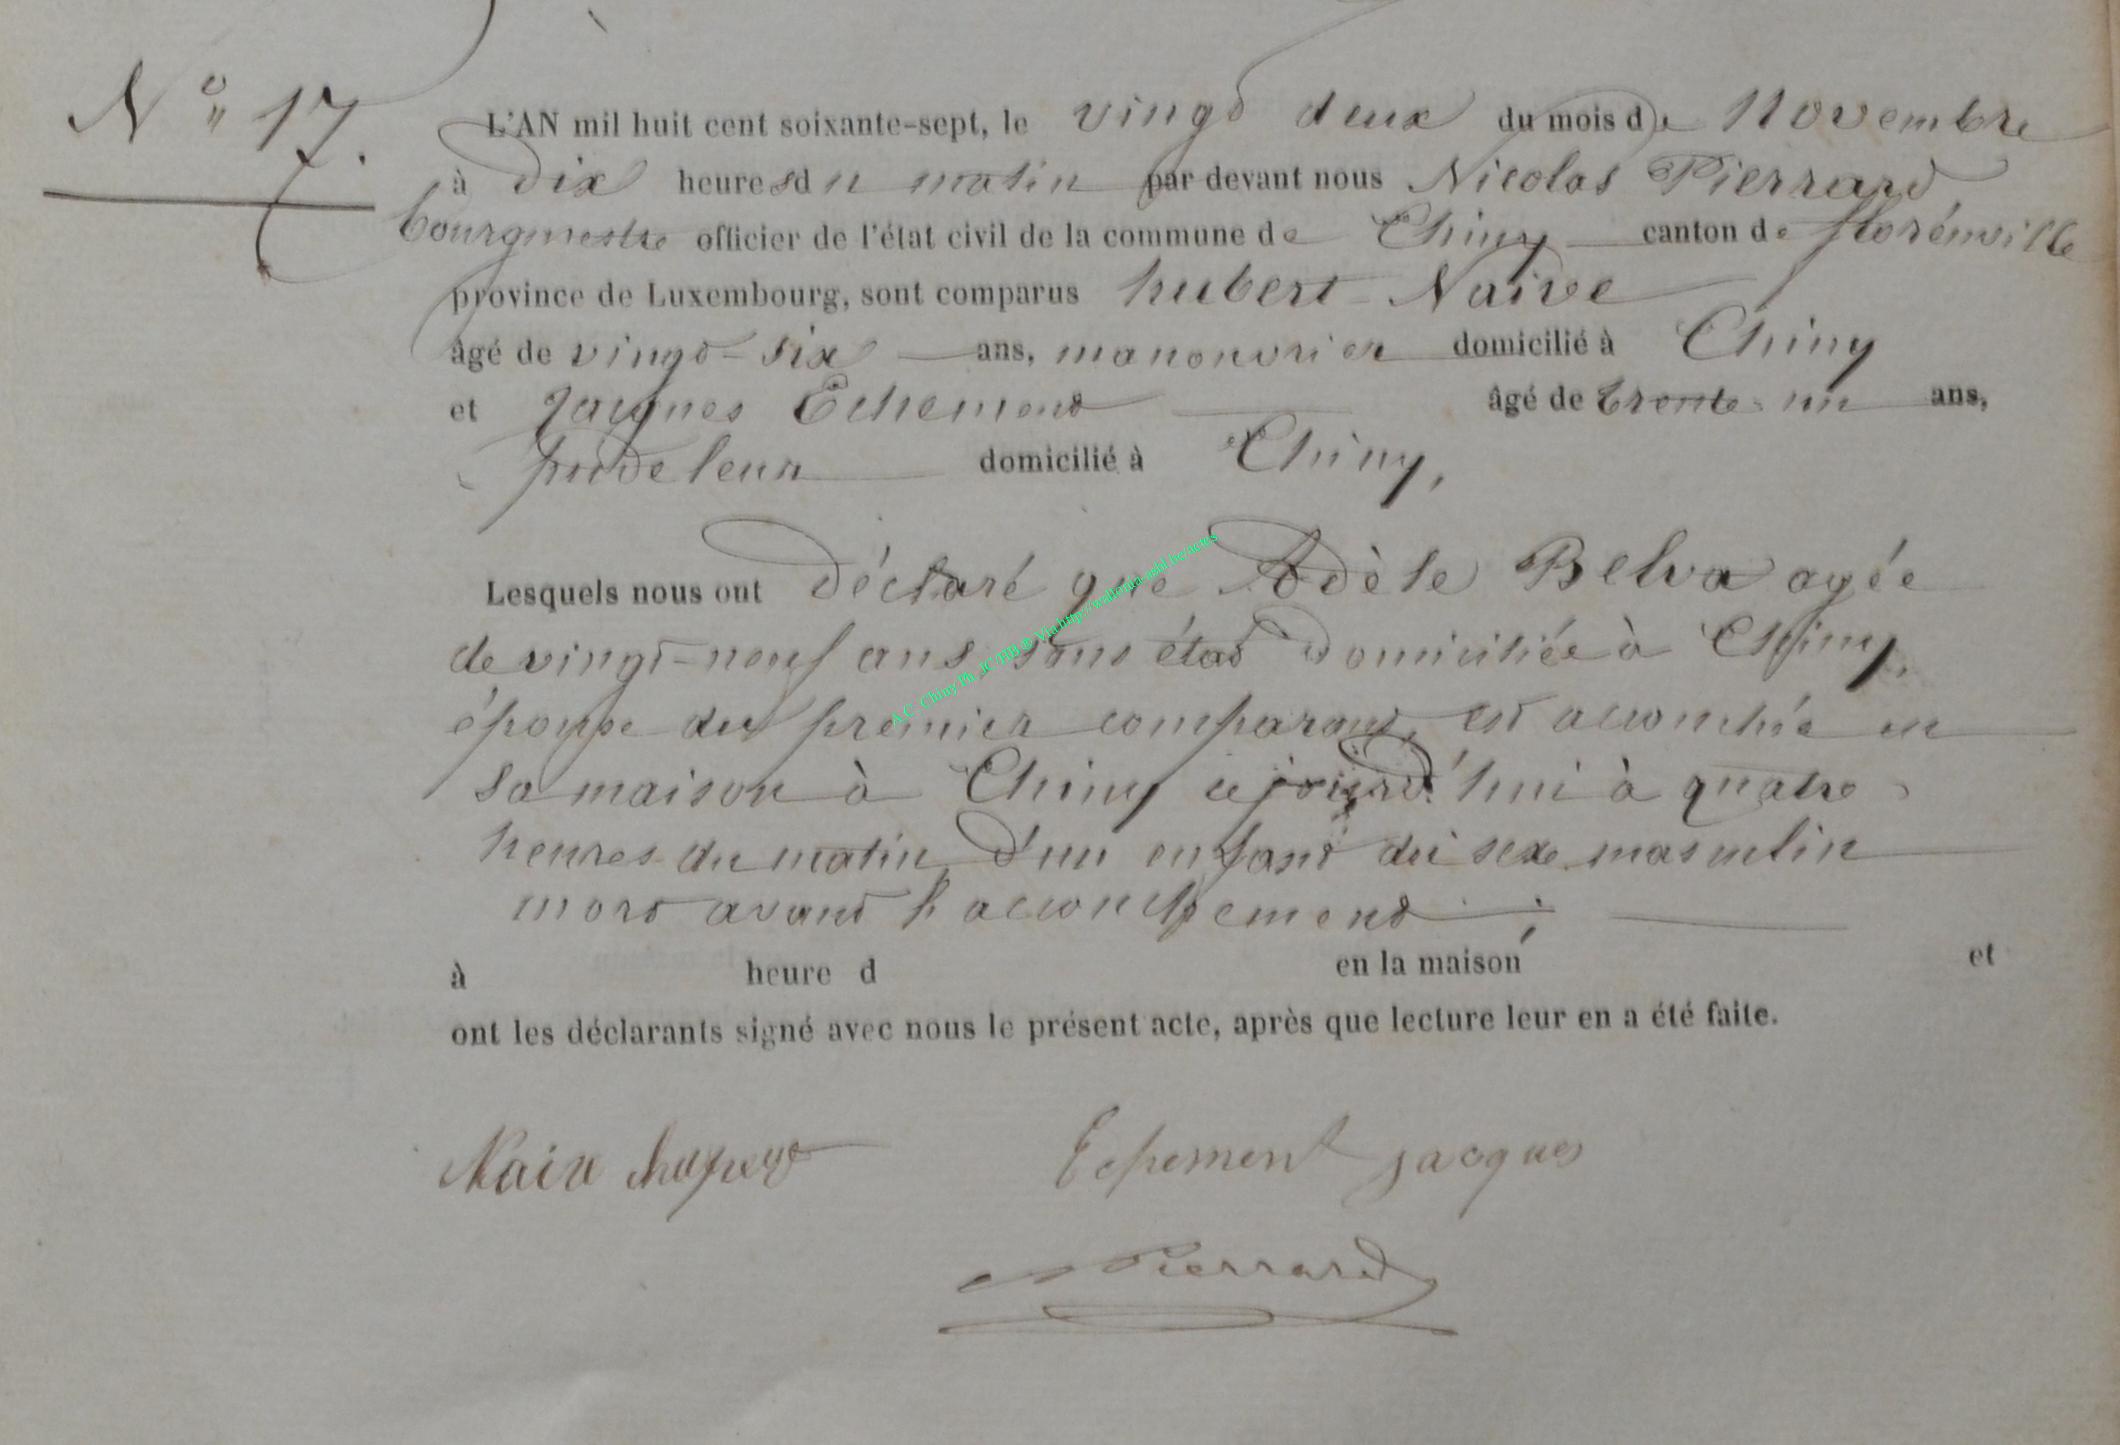 N° 17.
L'AN mil huit cent soixante-sept, le vingt deux du mois de Novembre
à dix heures du matin par devant nous Nicolas Pierrard
bourgmestre officier de l'état civil de la commune de Chiny canton de florénville
province de Luxembourg, sont comparus hubert Naive
âgé de vingt-six ans, manouvrier domicilié à Chiny
et Jacques Echement âgé de trente-un ans,
pudeleur domicilié à Chiny,
Lesquels nous ont déclaré que Adèle Belva agée
de vingt-neuf ans sans état domiciliée à Chiny,
épouse du premier comparant, est accouchée en
sa maison à Chiny cejourd'hui à quatre
heures du matin, d'un enfant du sexe masculin
mort avant l'accouchement ;
à heure d en la maison et
ont les déclarants signé avec nous le présent acte, après que lecture leur en a été faite.
Echement jacques
Pierrard
A.C. Chiny Ph. JC/HH ® Via http://wallonia-asbl.be/actes